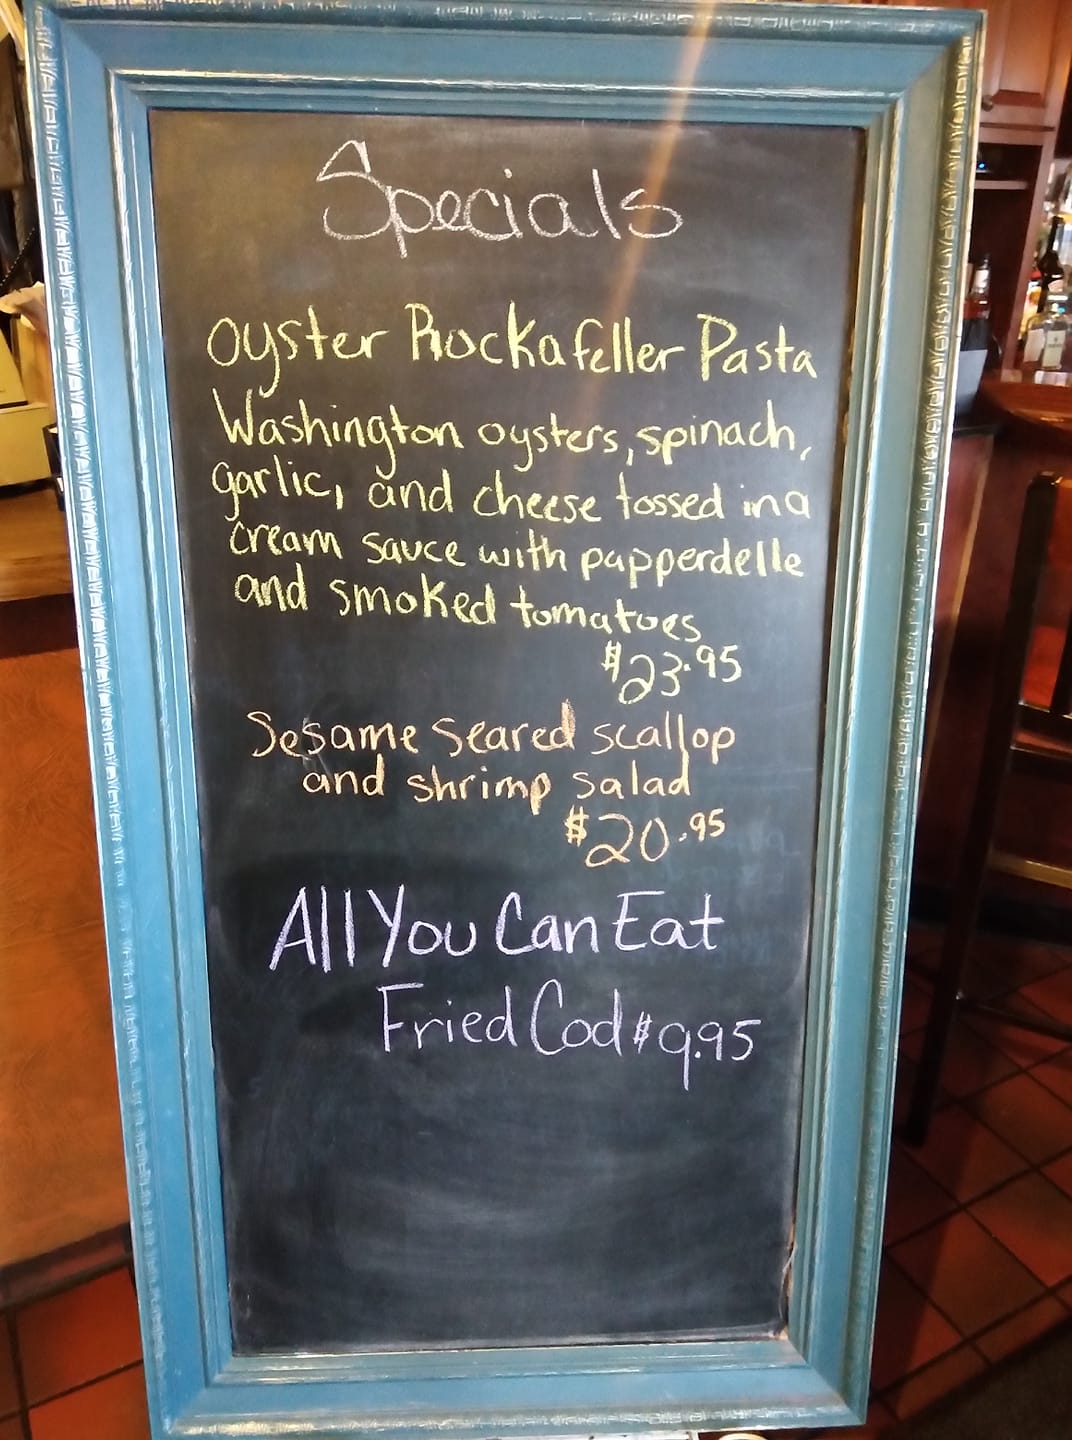 Specials
Oyster Rockafeller Pasta
Washington oysters, spinach,
garlic, and cheese tossed in a
cream sauce with papperdelle
and smoked tomatoes
$23.95
Sesame seared scallop
and shrimp salad
$20.95
All You Can Eat
Fried Cod $9.95